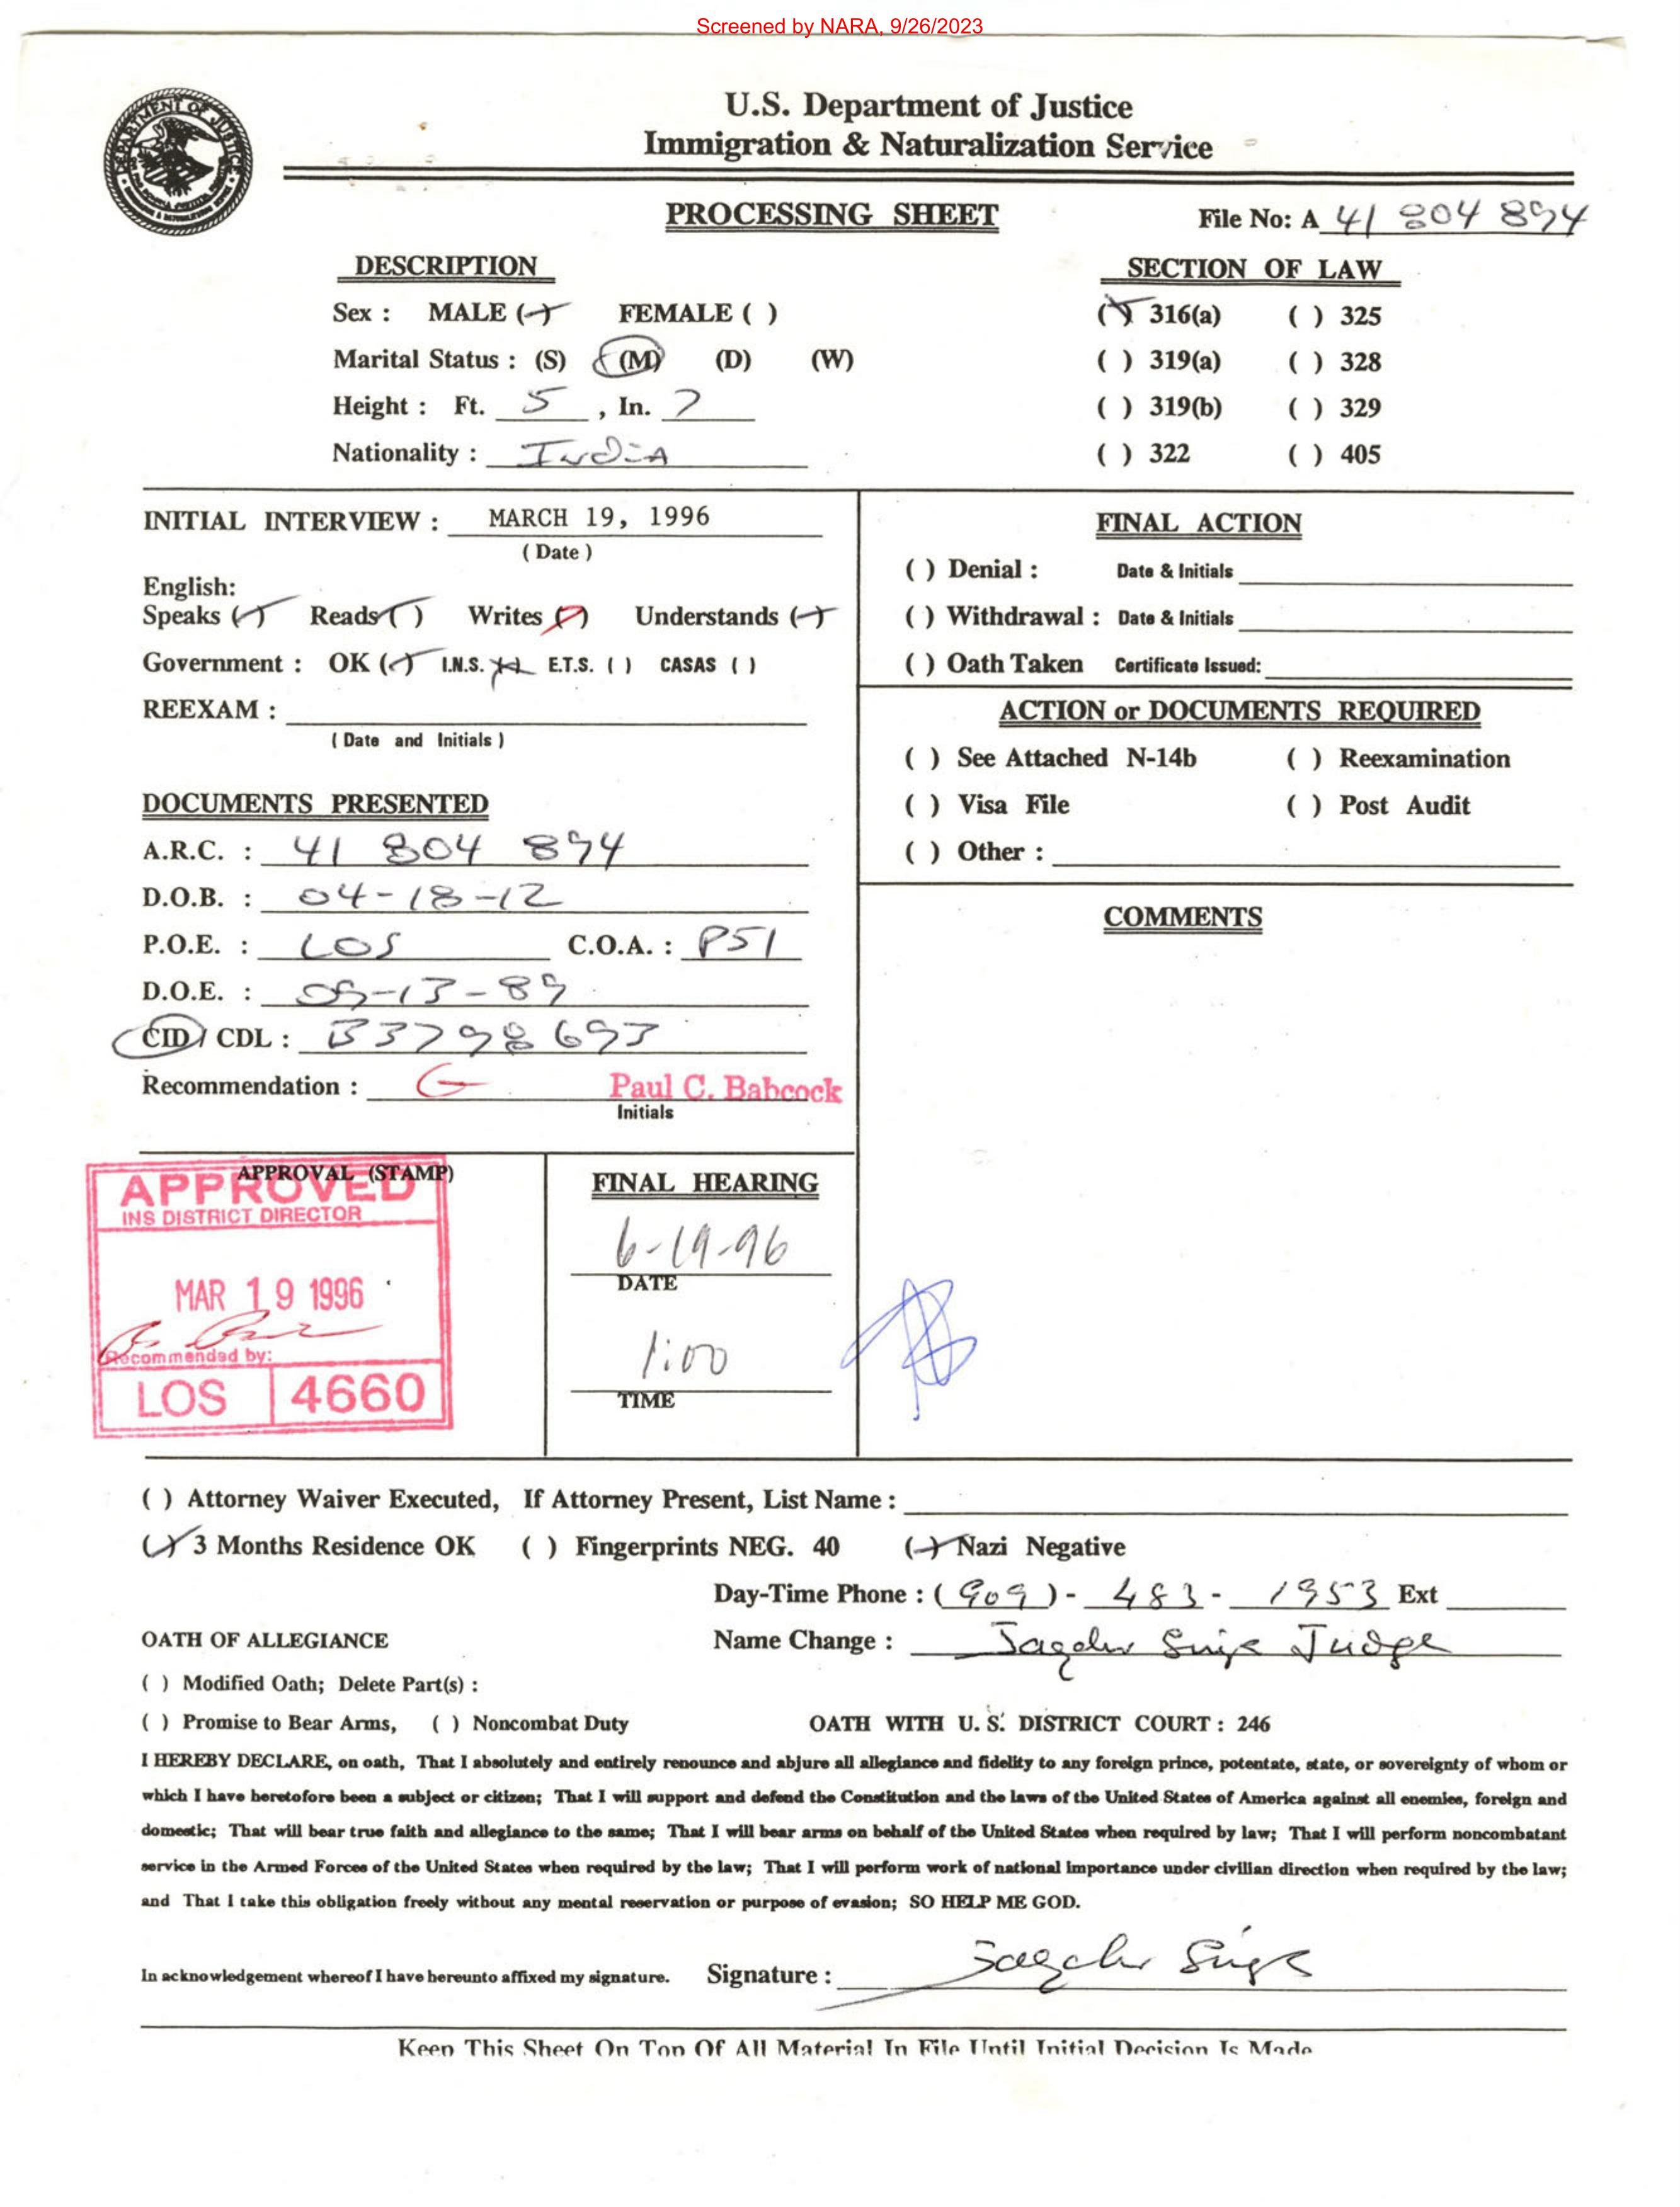 Screened by NARA, 9/26/2023
U.S. Department of Justice
Immigration & Naturalization Service
PROCESSING SHEET
File No: A 41 804 894
DESCRIPTION
Sex : MALE ( ) FEMALE ( )
Marital Status : (S) (M) (D) (W)
Height : Ft. 5 , In. 7
Nationality : India
SECTION OF LAW
( ) 316(a) ( ) 325
( ) 319(a) ( ) 328
( ) 319(b) ( ) 329
( ) 322 ( ) 405
INITIAL INTERVIEW : MARCH 19, 1996
( Date )
English:
Speaks ( ) Reads ( ) Writes ( ) Understands ( )
Government : OK ( ) I.N.S. ( ) E.T.S. ( ) CASAS ( )
REEXAM :
( Date and Initials )
DOCUMENTS PRESENTED
A.R.C. : 41 804 894
D.O.B. : 04-18-12
P.O.E. : LOS C.O.A. : P51
D.O.E. : -13-89
CID / CDL : B3798693
Recommendation : G Paul C. Babcock
Initials
FINAL ACTION
( ) Denial : Date & Initials
( ) Withdrawal : Date & Initials
( ) Oath Taken Certificate Issued:
ACTION or DOCUMENTS REQUIRED
( ) See Attached N-14b ( ) Reexamination
( ) Visa File ( ) Post Audit
( ) Other :
COMMENTS
APPROVAL (STAMP)
APPROVED
INS DISTRICT DIRECTOR
MAR 19 1996
Recommended by:
LOS 4660
FINAL HEARING
6-19-96
DATE
1:00
TIME
( ) Attorney Waiver Executed, If Attorney Present, List Name :
( ) 3 Months Residence OK ( ) Fingerprints NEG. 40 ( ) Nazi Negative
Day-Time Phone : ( 909 ) - 483 - 1953 Ext
OATH OF ALLEGIANCE
Name Change : Singh Judge
( ) Modified Oath; Delete Part(s) :
( ) Promise to Bear Arms, ( ) Noncombat Duty
OATH WITH U. S. DISTRICT COURT : 246
I HEREBY DECLARE, on oath, That I absolutely and entirely renounce and abjure all allegiance and fidelity to any foreign prince, potentate, state, or sovereignty of whom or
which I have heretofore been a subject or citizen; That I will support and defend the Constitution and the laws of the United States of America against all enemies, foreign and
domestic; That will bear true faith and allegiance to the same; That I will bear arms on behalf of the United States when required by law; That I will perform noncombatant
service in the Armed Forces of the United States when required by the law; That I will perform work of national importance under civilian direction when required by the law;
and That I take this obligation freely without any mental reservation or purpose of evasion; SO HELP ME GOD.
In acknowledgement whereof I have hereunto affixed my signature. Signature : Singh
Keep This Sheet On Top Of All Material In File Until Initial Decision Is Made